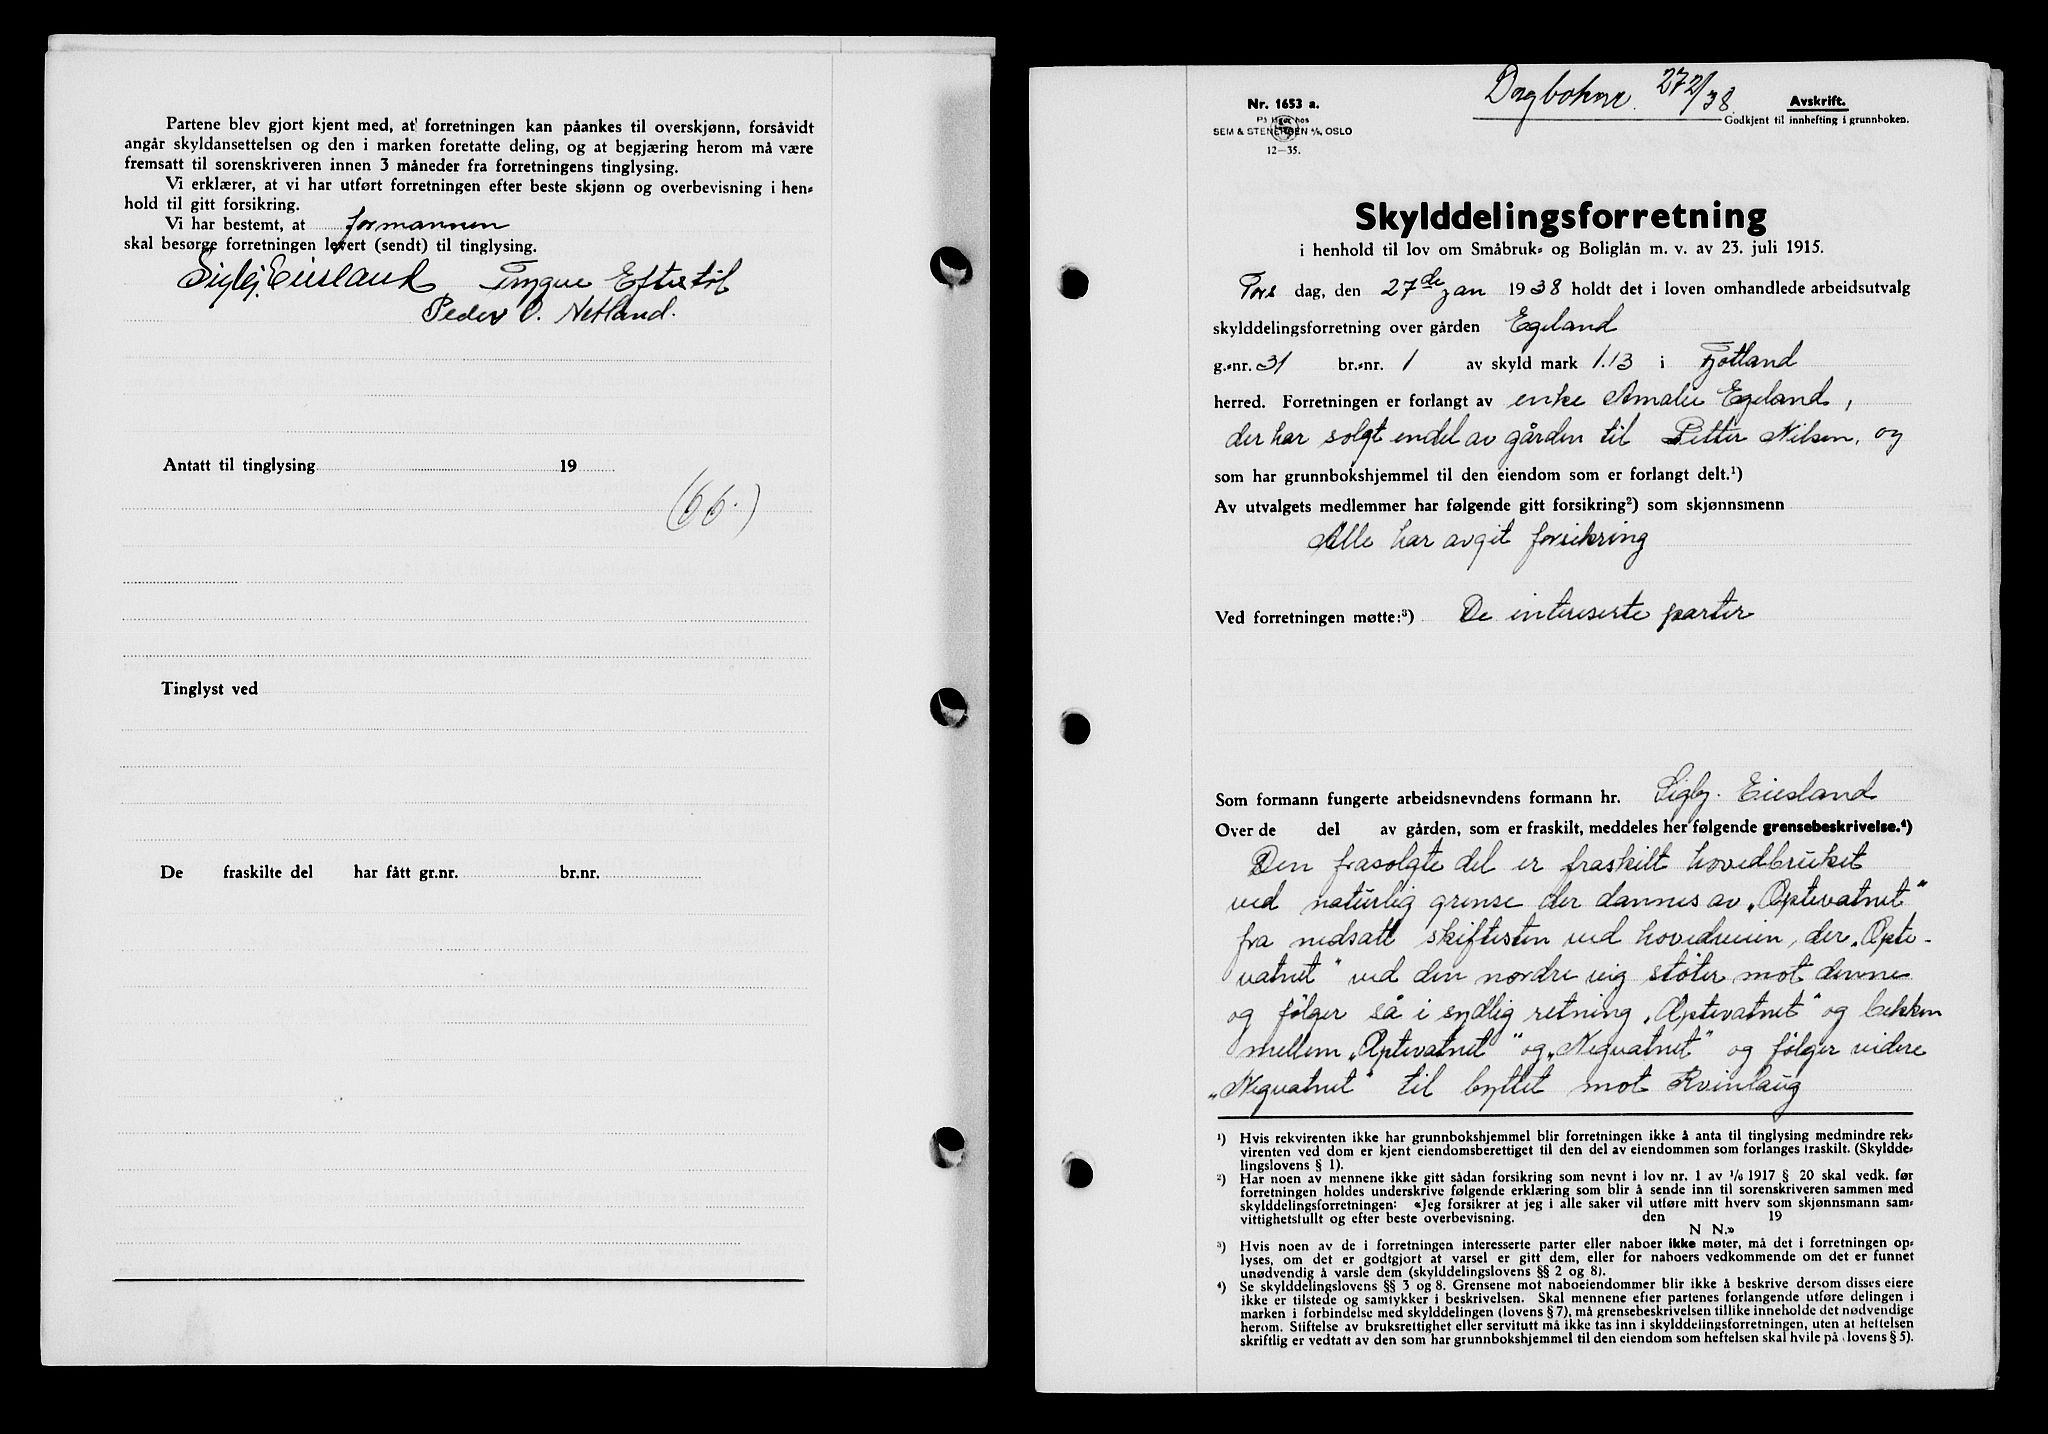 Partene blev gjort kjent med, at forretningen kan påankes til overskjønn, forsåvidt
angår skyldansettelsen og den i marken foretatte deling, og at begjæring herom må være
fremsatt til sorenskriveren innen 3 måneder fra forretningens tinglysing.
Vi erklærer, at vi har utført forretningen efter beste skjønn og overbevisning i hen-
hold til gitt forsikring.
Vi har bestemt, at formannen
skal besørge forretningen levert (sendt) til tinglysing.
Sigbj. Eiesland Trygve Eftestøl
Peder O. Netland.
Antatt til tinglysing 19
(66.)
Tinglyst ved
De fraskilte del har fått gr.nr. br.nr.
Dagboknr. 272/38
Nr. 1653 a.
Avskrift.
Godkjent til innhefting i grunnboken.
SEM & STENERSEN A/S, OSLO
12—35.
Skylddelingsforretning
i henhold til lov om Småbruk- og Boliglån m. v. av 23. juli 1915.
Tors dag, den 27de jan 1938 holdt det i loven omhandlede arbeidsutvalg
skylddelingsforretning over gården Egeland
g.-nr. 31 br.-nr. 1 av skyld mark 1.13 i Fjotland
herred. Forretningen er forlangt av enke Amalie Egeland,
der har solgt endel av gården til Petter Nilsen, og
som har grunnbokshjemmel til den eiendom som er forlangt delt.¹)
Av utvalgets medlemmer har følgende gitt forsikring²) som skjønnsmenn
Alle har avgit forsikring
Ved forretningen møtte:³) De intereserte parter
Som formann fungerte arbeidsnevndens formann hr. Sigbj. Eiesland
Over de del av gården, som er fraskilt, meddeles her følgende grensebeskrivelse.⁴)
Den frasolgte del er fraskilt hovedbruket
ved naturlig grense der dannes av „Optevatnet"
fra nedsatt skiftesten ved hovedveien, der „Opte-
vatnet" ved den nordre vig støter mot denne
og følger så i sydlig retning „Optevatnet" og bekken
mellem „Optevatnet" og „Negvatnet" og følger videre
„Negvatnet" til byttet mot Kvinlaug
¹) Hvis rekvirenten ikke har grunnbokshjemmel blir forretningen ikke å anta til tinglysing medmindre rek-
virenten ved dom er kjent eiendomsberettiget til den del av eiendommen som forlanges fraskilt. (Skyldde-
lingslovens § 1).
²) Har noen av mennene ikke gitt sådan forsikring som nevnt i lov nr. 1 av 1/6 1917 § 20 skal vedk. før
forretningen holdes underskrive følgende erklæring som blir å sende inn til sorenskriveren sammen med
skylddelingsforretningen: «Jeg forsikrer at jeg i alle saker vil utføre mitt hverv som skjønnsmann sam-
vittighetsfullt og efter beste overbevisning. den 19
N N.»
³) Hvis noen av de i forretningen interesserte parter eller naboer ikke møter, må det i forretningen op-
lyses, om det er godtgjort at varsel er gitt dem, eller for naboers vedkommende om det er funnet
unødvendig å varsle dem (skylddelingslovens §§ 2 og 8).
⁴) Se skylddelingslovens §§ 3 og 8. Grensene mot naboeiendommer blir ikke å beskrive dersom disses eiere
ikke er tilstede og samtykker i beskrivelsen. Skal mennene efter partenes forlangende utføre delingen i
marken i forbindelse med skylddelingen (lovens § 7), må grensebeskrivelsen tillike inneholde det nødvendige
herom. Stiftelse av bruksrettighet eller servitutt må ikke tas inn i skylddelingsforretningen, uten at heftelsen
skriftlig er vedtatt av den som har grunnbokshjemmel til den eiendom som heftelsen skal hvile på (lovens § 5).